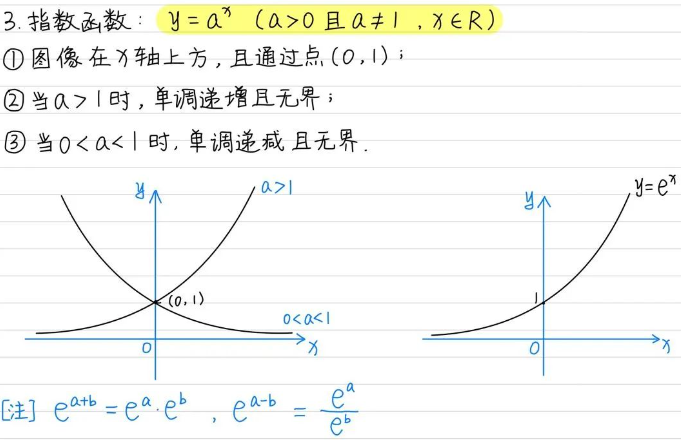 3.指数函数： y=a^x （a>0且a≠1，x∈R）
①图像在x轴上方，且通过点(0,1)；
②当a>1时，单调递增且无界；
③当0<a<1时，单调递减且无界.
y a>1 y y=e^x
(0,1) 1
0<a<1
0 x 0 x
[注] e^{a+b}=e^a·e^b ，e^{a-b} = \frac{e^a}{e^b}